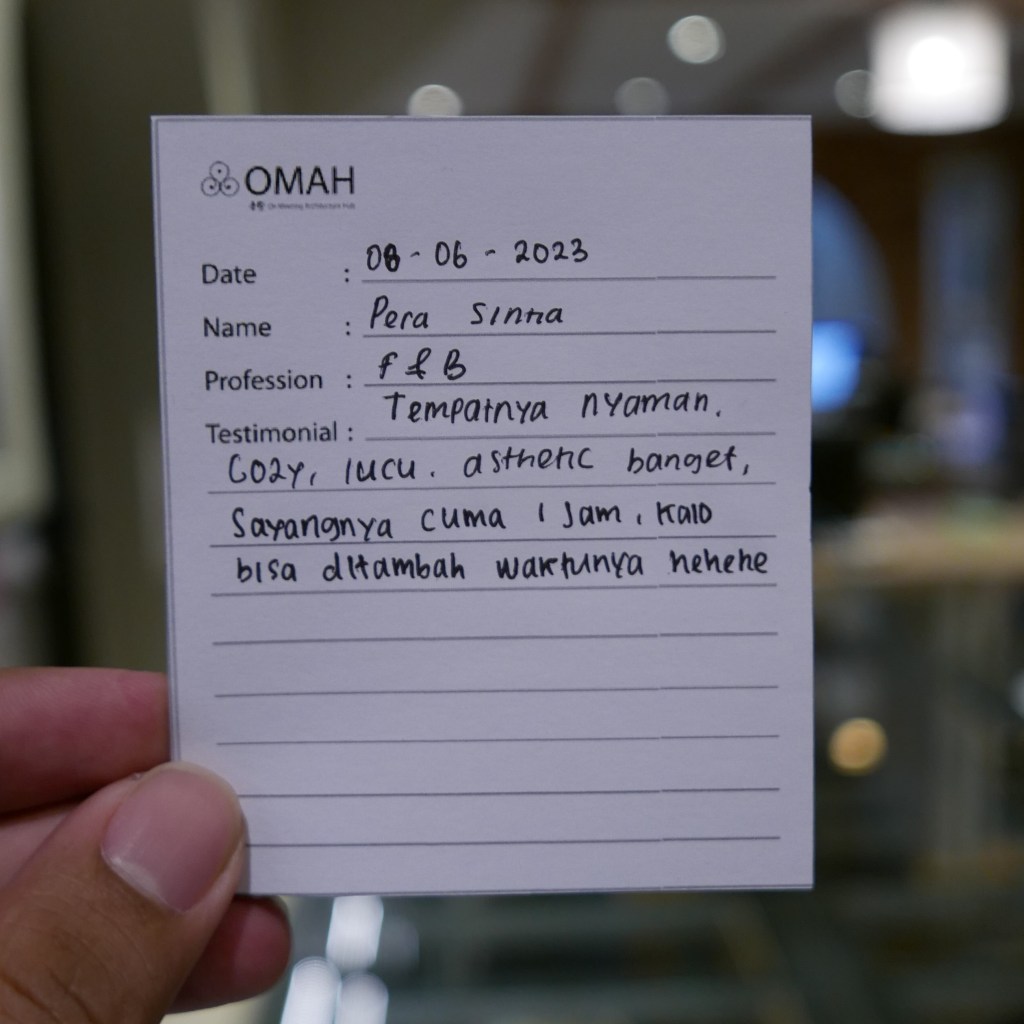 OMAH
On-Meeting Architecture Hub
Date : 08 - 06 - 2023
Name : Pera Sinta
Profession : F & B
Testimonial : Tempatnya nyaman.
Cozy, lucu. asthetic banget,
Sayangnya cuma 1 Jam, kalo
bisa ditambah waktunya hehehe